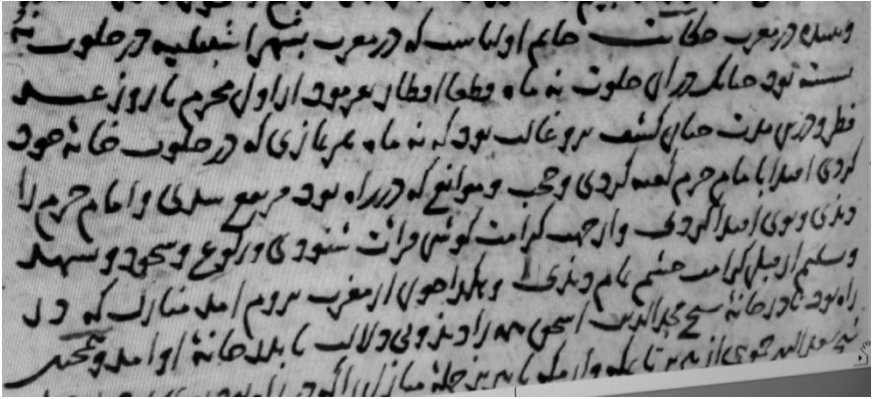 و سیدی در مغرب حکایت خاتم اولیاست که در مغرب بشهر اشبیلیه در خلوت نه
نشسته بود چنانک در آن خلوت نه ماه قطعا افطار نفرمود از اول محرم تا روز عید
فطر و درین مدت چنان کشف برو غالب بود که نه ماه هر نمازی که در خلوت خانهٔ خود
کردی اقتدا بامام حرم کعبه کردی و حجب و موانع که در راه بود مرتفع شدی و امام حرم را
دیدی و بوی اقتدا کردی و از جهت کرامت گوش قرائت شنودی و رکوع و سجود و تشهد
و سلیم از قبل کرامت چشم تمام دیدی و یکبار چون از مغرب بروم آمد منازل که در
راه بود تا در خانهٔ شیخ مجدالدین اسحق همه را دیدی و بی دلالت تا بدر خانهٔ او آمد و شیخ
سعدالدین حموی از تا بمکه و از مکه تا تبریز جمله منازل را که در راه بود